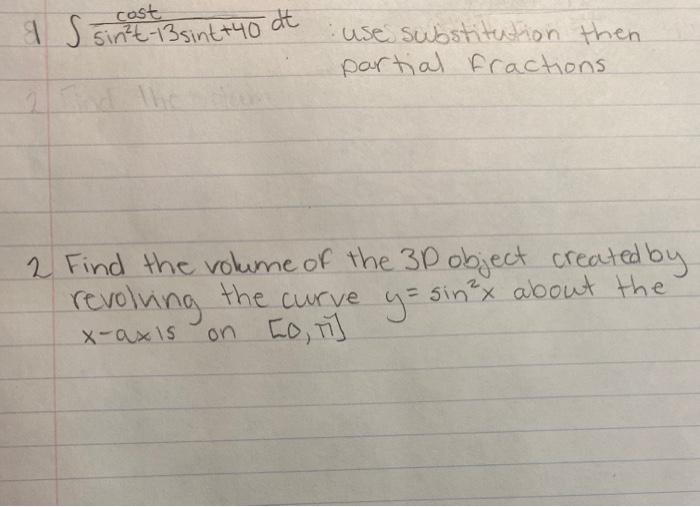 1 ∫ cost / sin²t-13sint+40 dt : use substitution then
partial fractions
2 Find the
2 Find the volume of the 3D object created by
revolving the curve y= sin²x about the
x-axis on [0, π]